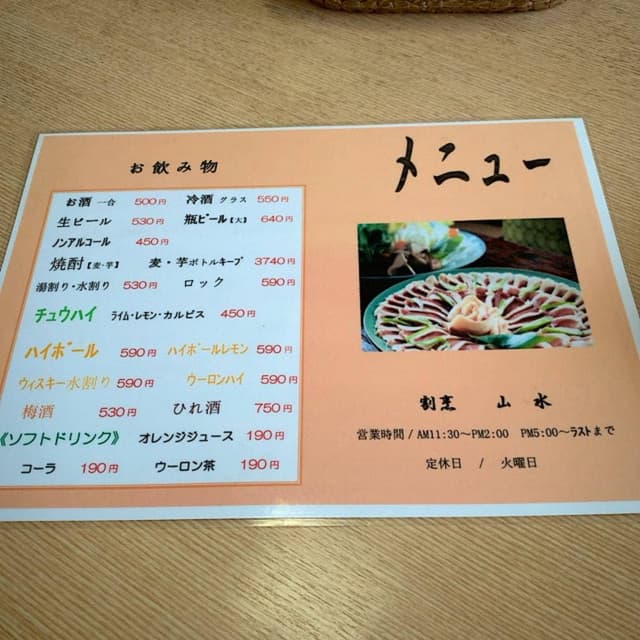 メニュー
お飲み物
お酒 一合 500円 冷酒 グラス 550円
生ビール 530円 瓶ビール【大】 640円
ノンアルコール 450円
焼酎【麦・芋】 麦・芋ボトルキープ 3740円
湯割り・水割り 530円 ロック 590円
チュウハイ ライム・レモン・カルピス 450円
ハイボール 590円 ハイボールレモン 590円
ウィスキー水割り 590円 ウーロンハイ 590円
梅酒 530円 ひれ酒 750円
《ソフトドリンク》 オレンジジュース 190円
コーラ 190円 ウーロン茶 190円
割烹 山水
営業時間/AM11:30〜PM2:00 PM5:00〜ラストまで
定休日 / 火曜日